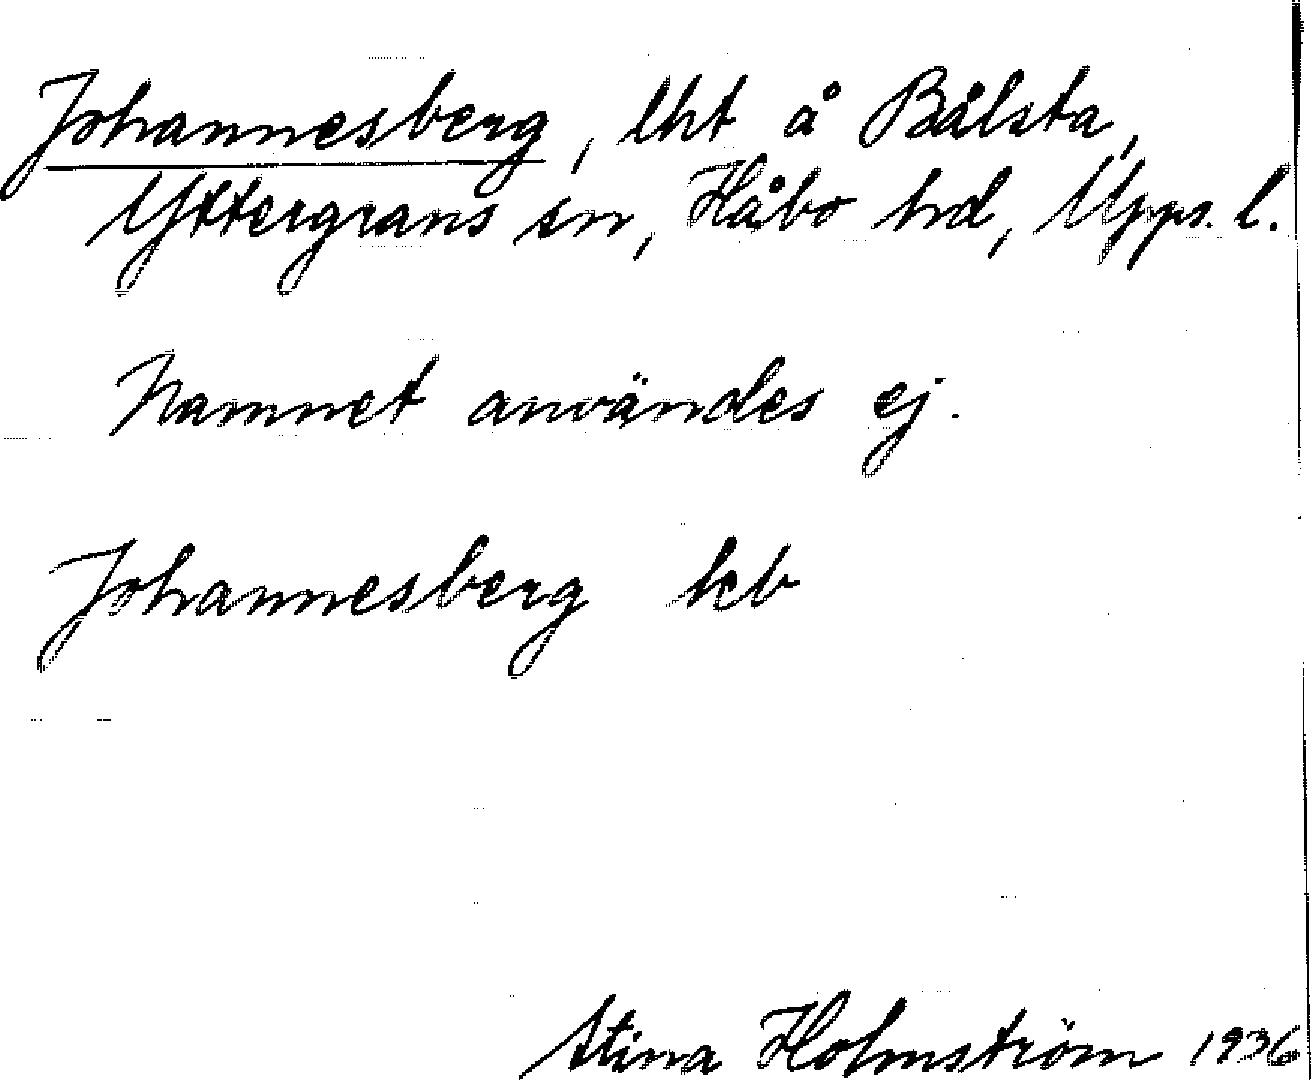 Johannesberg, lht å Bålsta,
Yttergrans sn, Håbo hd, Upps. l.
Namnet användes ej.
Johannesberg kb
Stina Holmström 1936